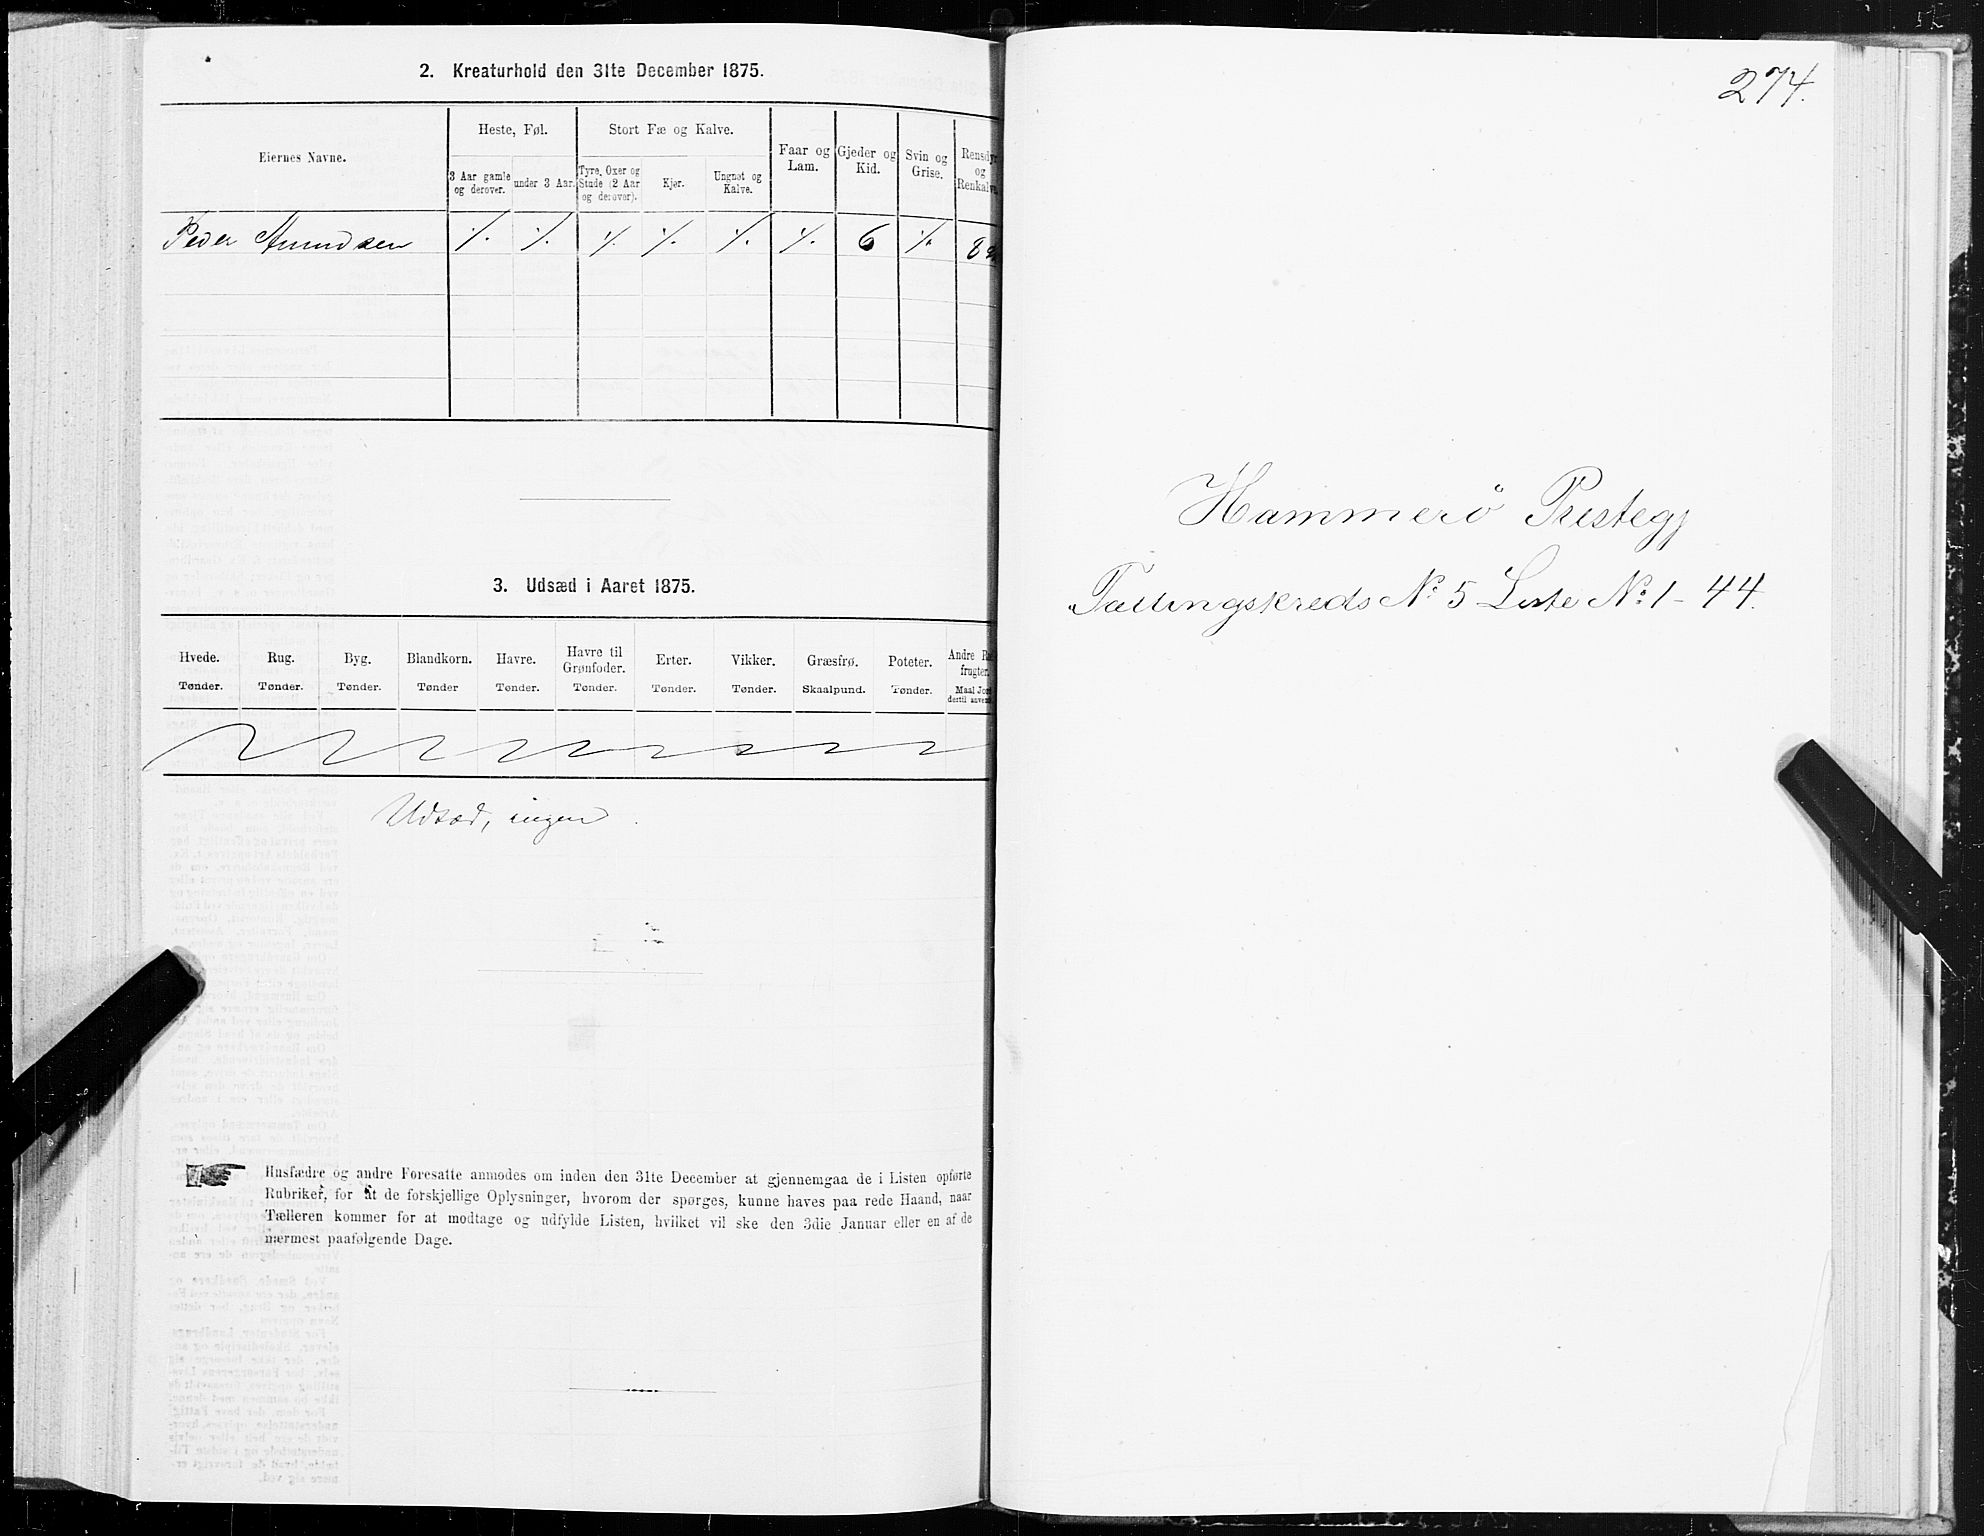 2. Kreaturhold den 31te December 1875.
Eiernes Navne.
Heste, Føl.
Stort Fæ og Kalve.
Faar og Lam.
Gjeder og Kid.
Svin og Grise.
Rensdyr og Renkalve.
3 Aar gamle og derover.
under 3 Aar.
Tyre, Oxer og Stude (2 Aar og derover).
Kjør.
Ungnøt og Kalve.
Peder Amundsen ./. ./. ./. ./. ./. ./. 6 ./. 8
3. Udsæd i Aaret 1875.
Hvede. Rug. Byg. Blandkorn. Havre. Havre til Grønfoder. Erter. Vikker. Græsfrø. Poteter. Andre
frugter.
Tønder. Tønder. Tønder. Tønder Tønder. Tønder. Tønder. Tønder. Skaalpund. Tønder. Maal
dertil
Udsæd, ingen.
Husfædre og andre Foresatte anmodes om inden den 31te December at gjennemgaa de i Listen opførte
Rubriker, for at de forskjellige Oplysninger, hvorom der spørges, kunne haves paa rede Haand, naar
Tælleren kommer for at modtage og udfylde Listen, hvilket vil ske den 3die Januar eller en af de
nærmest paafølgende Dage.
274.
Hammerö Prestegj
Tællingskreds No 5 Liste No 1-44.